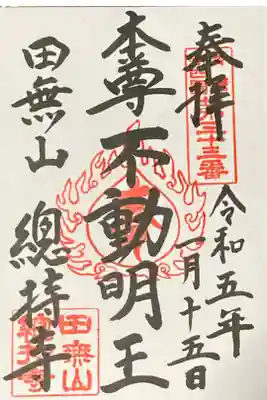 奉拝
令和五年
一月十五日
本尊不動明王
田無山
總持寺
田無山